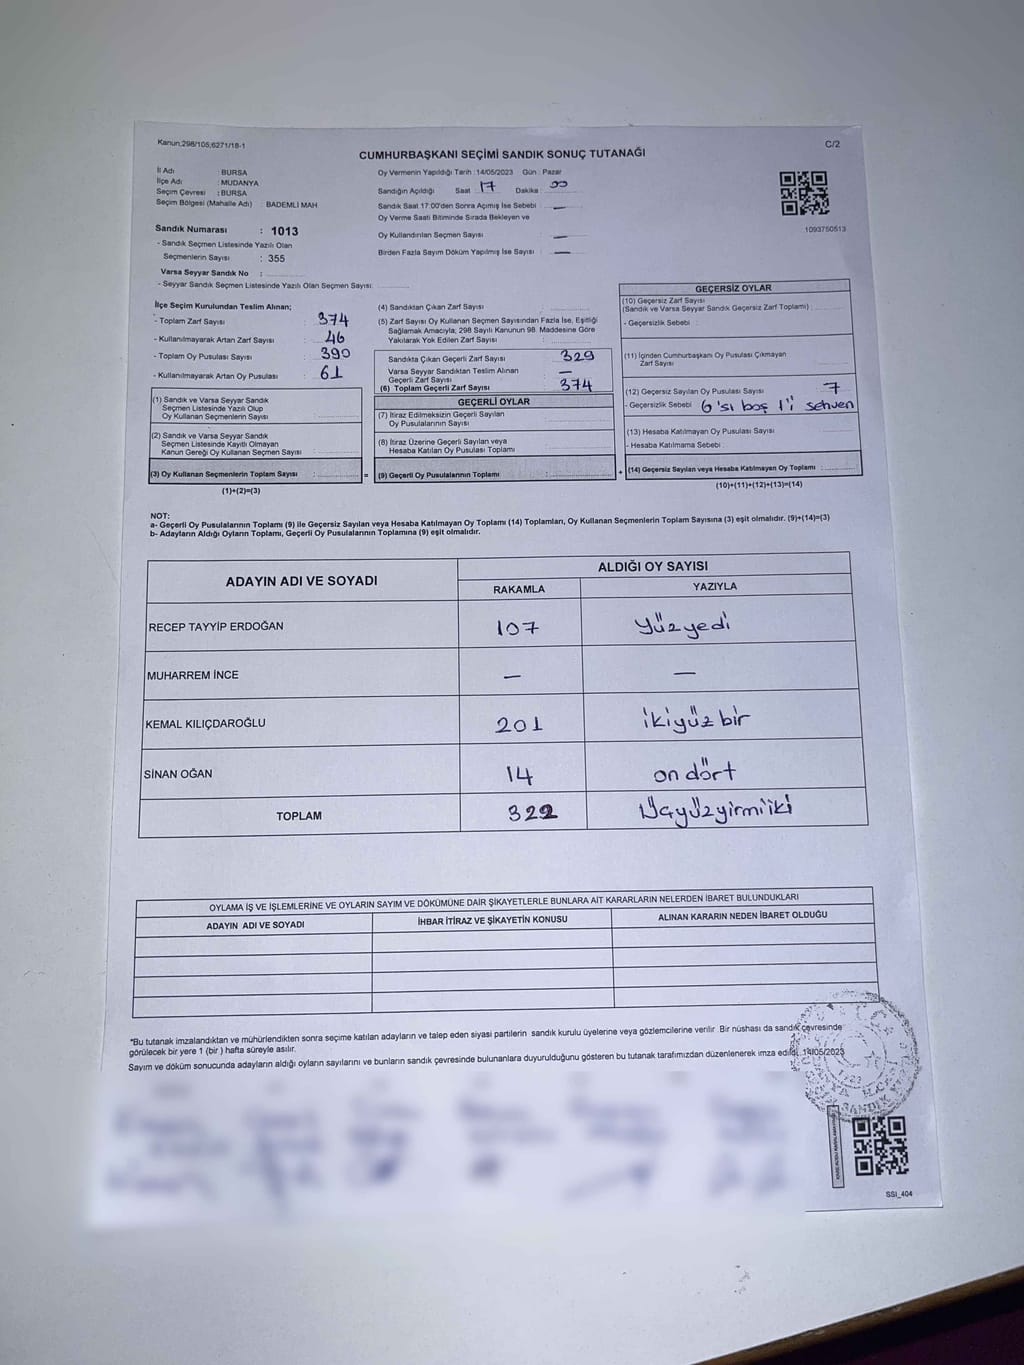 Kanun,298/105,6271/18-1
C/2
CUMHURBAŞKANI SEÇİMİ SANDIK SONUÇ TUTANAĞI
İl Adı : BURSA
İlçe Adı : MUDANYA
Seçim Çevresi : BURSA
Seçim Bölgesi (Mahalle Adı) : BADEMLİ MAH.
Sandık Numarası : 1013
- Sandık Seçmen Listesinde Yazılı Olan
Seçmenlerin Sayısı : 355
Varsa Seyyar Sandık No :
- Seyyar Sandık Seçmen Listesinde Yazılı Olan Seçmen Sayısı:
Oy Vermenin Yapıldığı Tarih : 14/05/2023 Gün : Pazar
Sandığın Açıldığı Saat 17 Dakika : 00
Sandık Saat 17:00'den Sonra Açımış İse Sebebi —
Oy Verme Saati Bitiminde Sırada Bekleyen ve
Oy Kullandırılan Seçmen Sayısı —
Birden Fazla Sayım Döküm Yapılmış İse Sayısı —
1093750513
İlçe Seçim Kurulundan Teslim Alınan;
- Toplam Zarf Sayısı : 374
- Kullanılmayarak Artan Zarf Sayısı : 46
- Toplam Oy Pusulası Sayısı : 390
- Kullanılmayarak Artan Oy Pusulası : 61
(1) Sandık ve Varsa Seyyar Sandık
Seçmen Listesinde Yazılı Olup
Oy Kullanan Seçmenlerin Sayısı
(2) Sandık ve Varsa Seyyar Sandık
Seçmen Listesinde Kayıtlı Olmayan
Kanun Gereği Oy Kullanan Seçmen Sayısı
(3) Oy Kullanan Seçmenlerin Toplam Sayısı :
(1)+(2)=(3)
(4) Sandıktan Çıkan Zarf Sayısı :
(5) Zarf Sayısı Oy Kullanan Seçmen Sayısından Fazla İse, Eşitliği
Sağlamak Amacıyla; 298 Sayılı Kanunun 98. Maddesine Göre
Yakılarak Yok Edilen Zarf Sayısı :
Sandıkta Çıkan Geçerli Zarf Sayısı : 329
Varsa Seyyar Sandıktan Teslim Alınan
Geçerli Zarf Sayısı —
(6) Toplam Geçerli Zarf Sayısı : 374
GEÇERLİ OYLAR
(7) İtiraz Edilmeksizin Geçerli Sayılan
Oy Pusulalarının Sayısı
(8) İtiraz Üzerine Geçerli Sayılan veya
Hesaba Katılan Oy Pusulası Toplamı
=
(9) Geçerli Oy Pusulalarının Toplamı :
+
GEÇERSİZ OYLAR
(10) Geçersiz Zarf Sayısı
(Sandık ve Varsa Seyyar Sandık Geçersiz Zarf Toplamı) :
- Geçersizlik Sebebi :
(11) İçinden Cumhurbaşkanı Oy Pusulası Çıkmayan
Zarf Sayısı
(12) Geçersiz Sayılan Oy Pusulası Sayısı : 7
- Geçersizlik Sebebi 6'sı boş 1'i sehven
(13) Hesaba Katılmayan Oy Pusulası Sayısı :
- Hesaba Katılmama Sebebi :
(14) Geçersiz Sayılan veya Hesaba Katılmayan Oy Toplamı :
(10)+(11)+(12)+(13)=(14)
NOT:
a- Geçerli Oy Pusulalarının Toplamı (9) ile Geçersiz Sayılan veya Hesaba Katılmayan Oy Toplamı (14) Toplamları, Oy Kullanan Seçmenlerin Toplam Sayısına (3) eşit olmalıdır. (9)+(14)=(3)
b- Adayların Aldığı Oyların Toplamı, Geçerli Oy Pusulalarının Toplamına (9) eşit olmalıdır.
ADAYIN ADI VE SOYADI
ALDIĞI OY SAYISI
RAKAMLA YAZIYLA
RECEP TAYYİP ERDOĞAN 107 Yüzyedi
MUHARREM İNCE — —
KEMAL KILIÇDAROĞLU 201 ikiyüz bir
SİNAN OĞAN 14 on dört
TOPLAM 322 Üçyüzyirmiiki
OYLAMA İŞ VE İŞLEMLERİNE VE OYLARIN SAYIM VE DÖKÜMÜNE DAİR ŞİKAYETLERLE BUNLARA AİT KARARLARIN NELERDEN İBARET BULUNDUKLARI
ADAYIN ADI VE SOYADI İHBAR İTİRAZ VE ŞİKAYETİN KONUSU ALINAN KARARIN NEDEN İBARET OLDUĞU
*Bu tutanak imzalandıktan ve mühürlendikten sonra seçime katılan adayların ve talep eden siyasi partilerin sandık kurulu üyelerine veya gözlemcilerine verilir. Bir nüshası da sandık çevresinde
görülecek bir yere 1 (bir ) hafta süreyle asılır.
Sayım ve döküm sonucunda adayların aldığı oyların sayılarını ve bunların sandık çevresinde bulunanlara duyurulduğunu gösteren bu tutanak tarafımızdan düzenlenerek imza edildi. 14/05/2023
SANDIK
SSI_404